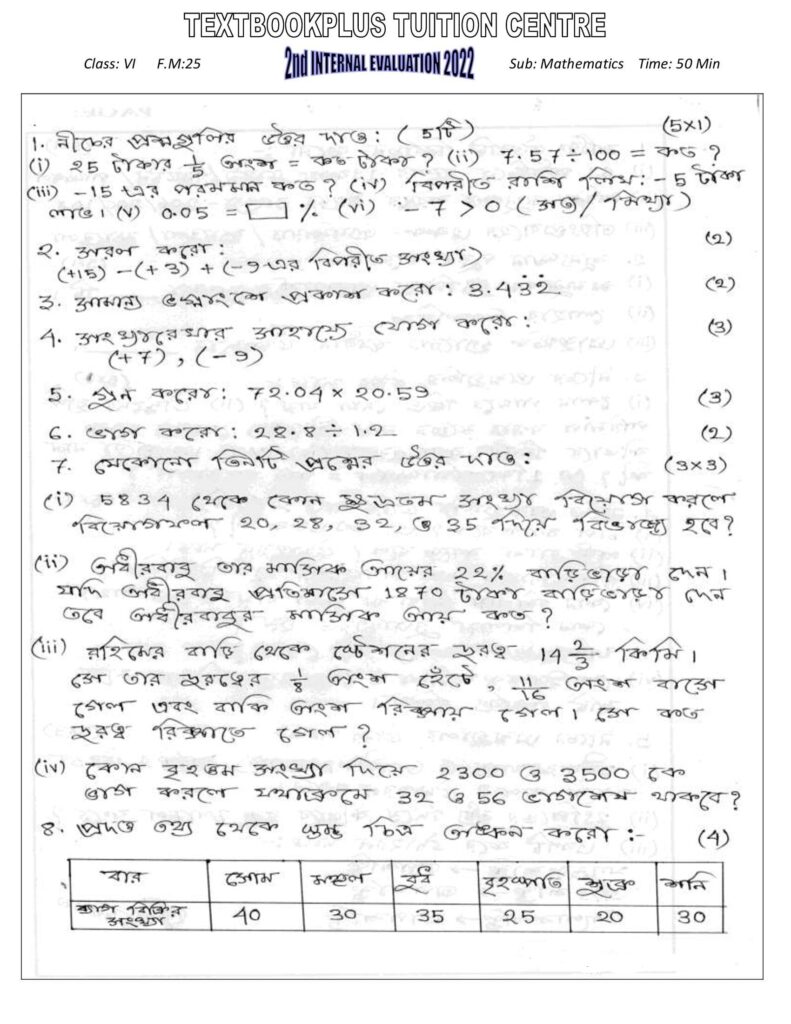 TEXTBOOKPLUS TUITION CENTRE
Class: VI F.M:25 2nd INTERNAL EVALUATION 2022 Sub: Mathematics Time: 50 Min
1. নীচের প্রশ্নগুলির উত্তর দাও: (5টি) (5×1)
(i) 25 টাকার 1/5 অংশ = কত টাকা? (ii) 7.57÷100 = কত?
(iii) -15 এর পরমমান কত? (iv) বিপরীত রাশি লিখ: - 5 টাকা
লাভ। (v) 0.05 = □ % (vi) - 7 > 0 (সত্য/মিথ্যা)
২. সরল করো: (2)
(+15) - (+3) + (-9 এর বিপরীত সংখ্যা)
3. সামান্য ভগ্নাংশে প্রকাশ করো: 3.4̇3̇2̇ (2)
4. সংখ্যারেখার সাহায্যে যোগ করো: (3)
(+7), (-9)
5. গুন করো: 72.04 × 20.59 (3)
6. ভাগ করো: 28.8 ÷ 1.2 (2)
7. যেকোনো তিনটি প্রশ্নের উত্তর দাও: (3×3)
(i) 5834 থেকে কোন ক্ষুদ্রতম সংখ্যা বিয়োগ করলে
বিয়োগফল 20, 28, 32, ও 35 দিয়ে বিভাজ্য হবে?
(ii) অধীরবাবু তার মাসিক আয়ের 22% বাড়িভাড়া দেন।
যদি অধীরবাবু প্রতিমাসে 1870 টাকা বাড়িভাড়া দেন
তবে অধীরবাবুর মাসিক আয় কত?
(iii) রহিমের বাড়ি থেকে স্টেশনের দুরত্ব 14 2/3 কিমি।
সে তার দুরত্বের 1/8 অংশ হেঁটে, 11/16 অংশ বাসে
গেল এবং বাকি অংশ রিক্সায় গেল। সে কত
দুরত্ব রিক্সাতে গেল?
(iv) কোন বৃহত্তম সংখ্যা দিয়ে 2300 ও 3500 কে
ভাগ করলে যথাক্রমে 32 ও 56 ভাগশেষ থাকবে?
8. প্রদত্ত তথ্য থেকে স্তম্ভ চিত্র অঙ্কন করো :- (4)
বার সোম মঙ্গল বুধ বৃহস্পতি শুক্র শনি
ব্যাগ বিক্রির সংখ্যা 40 30 35 25 20 30